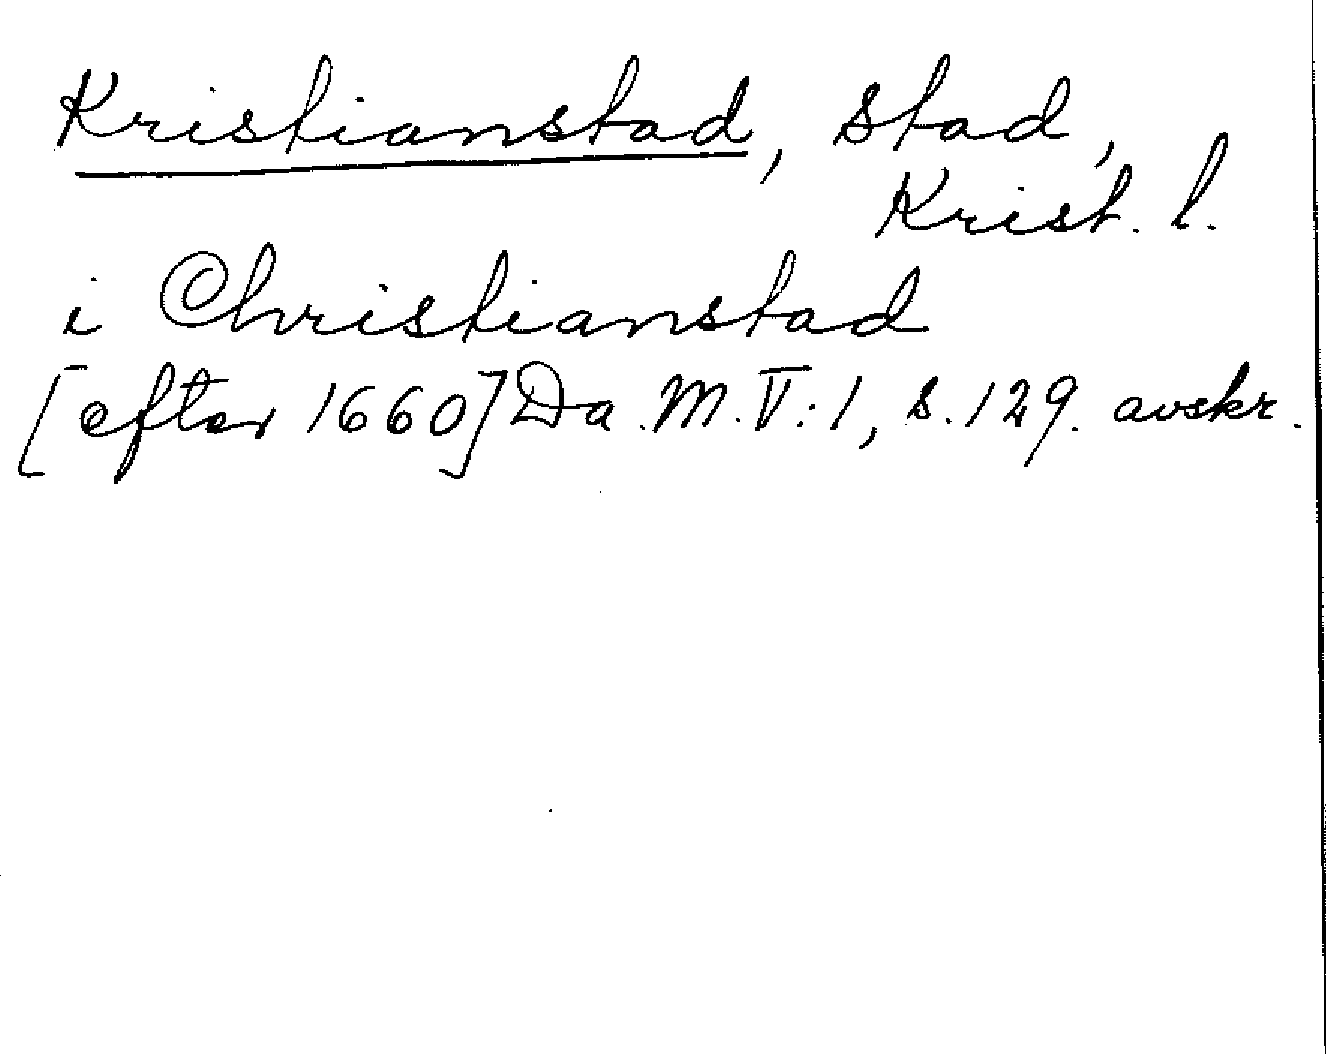 Kristianstad, stad,
Krist. l.
i Christianstad
[efter 1660] Da. M. V:1, s. 129. avskr.